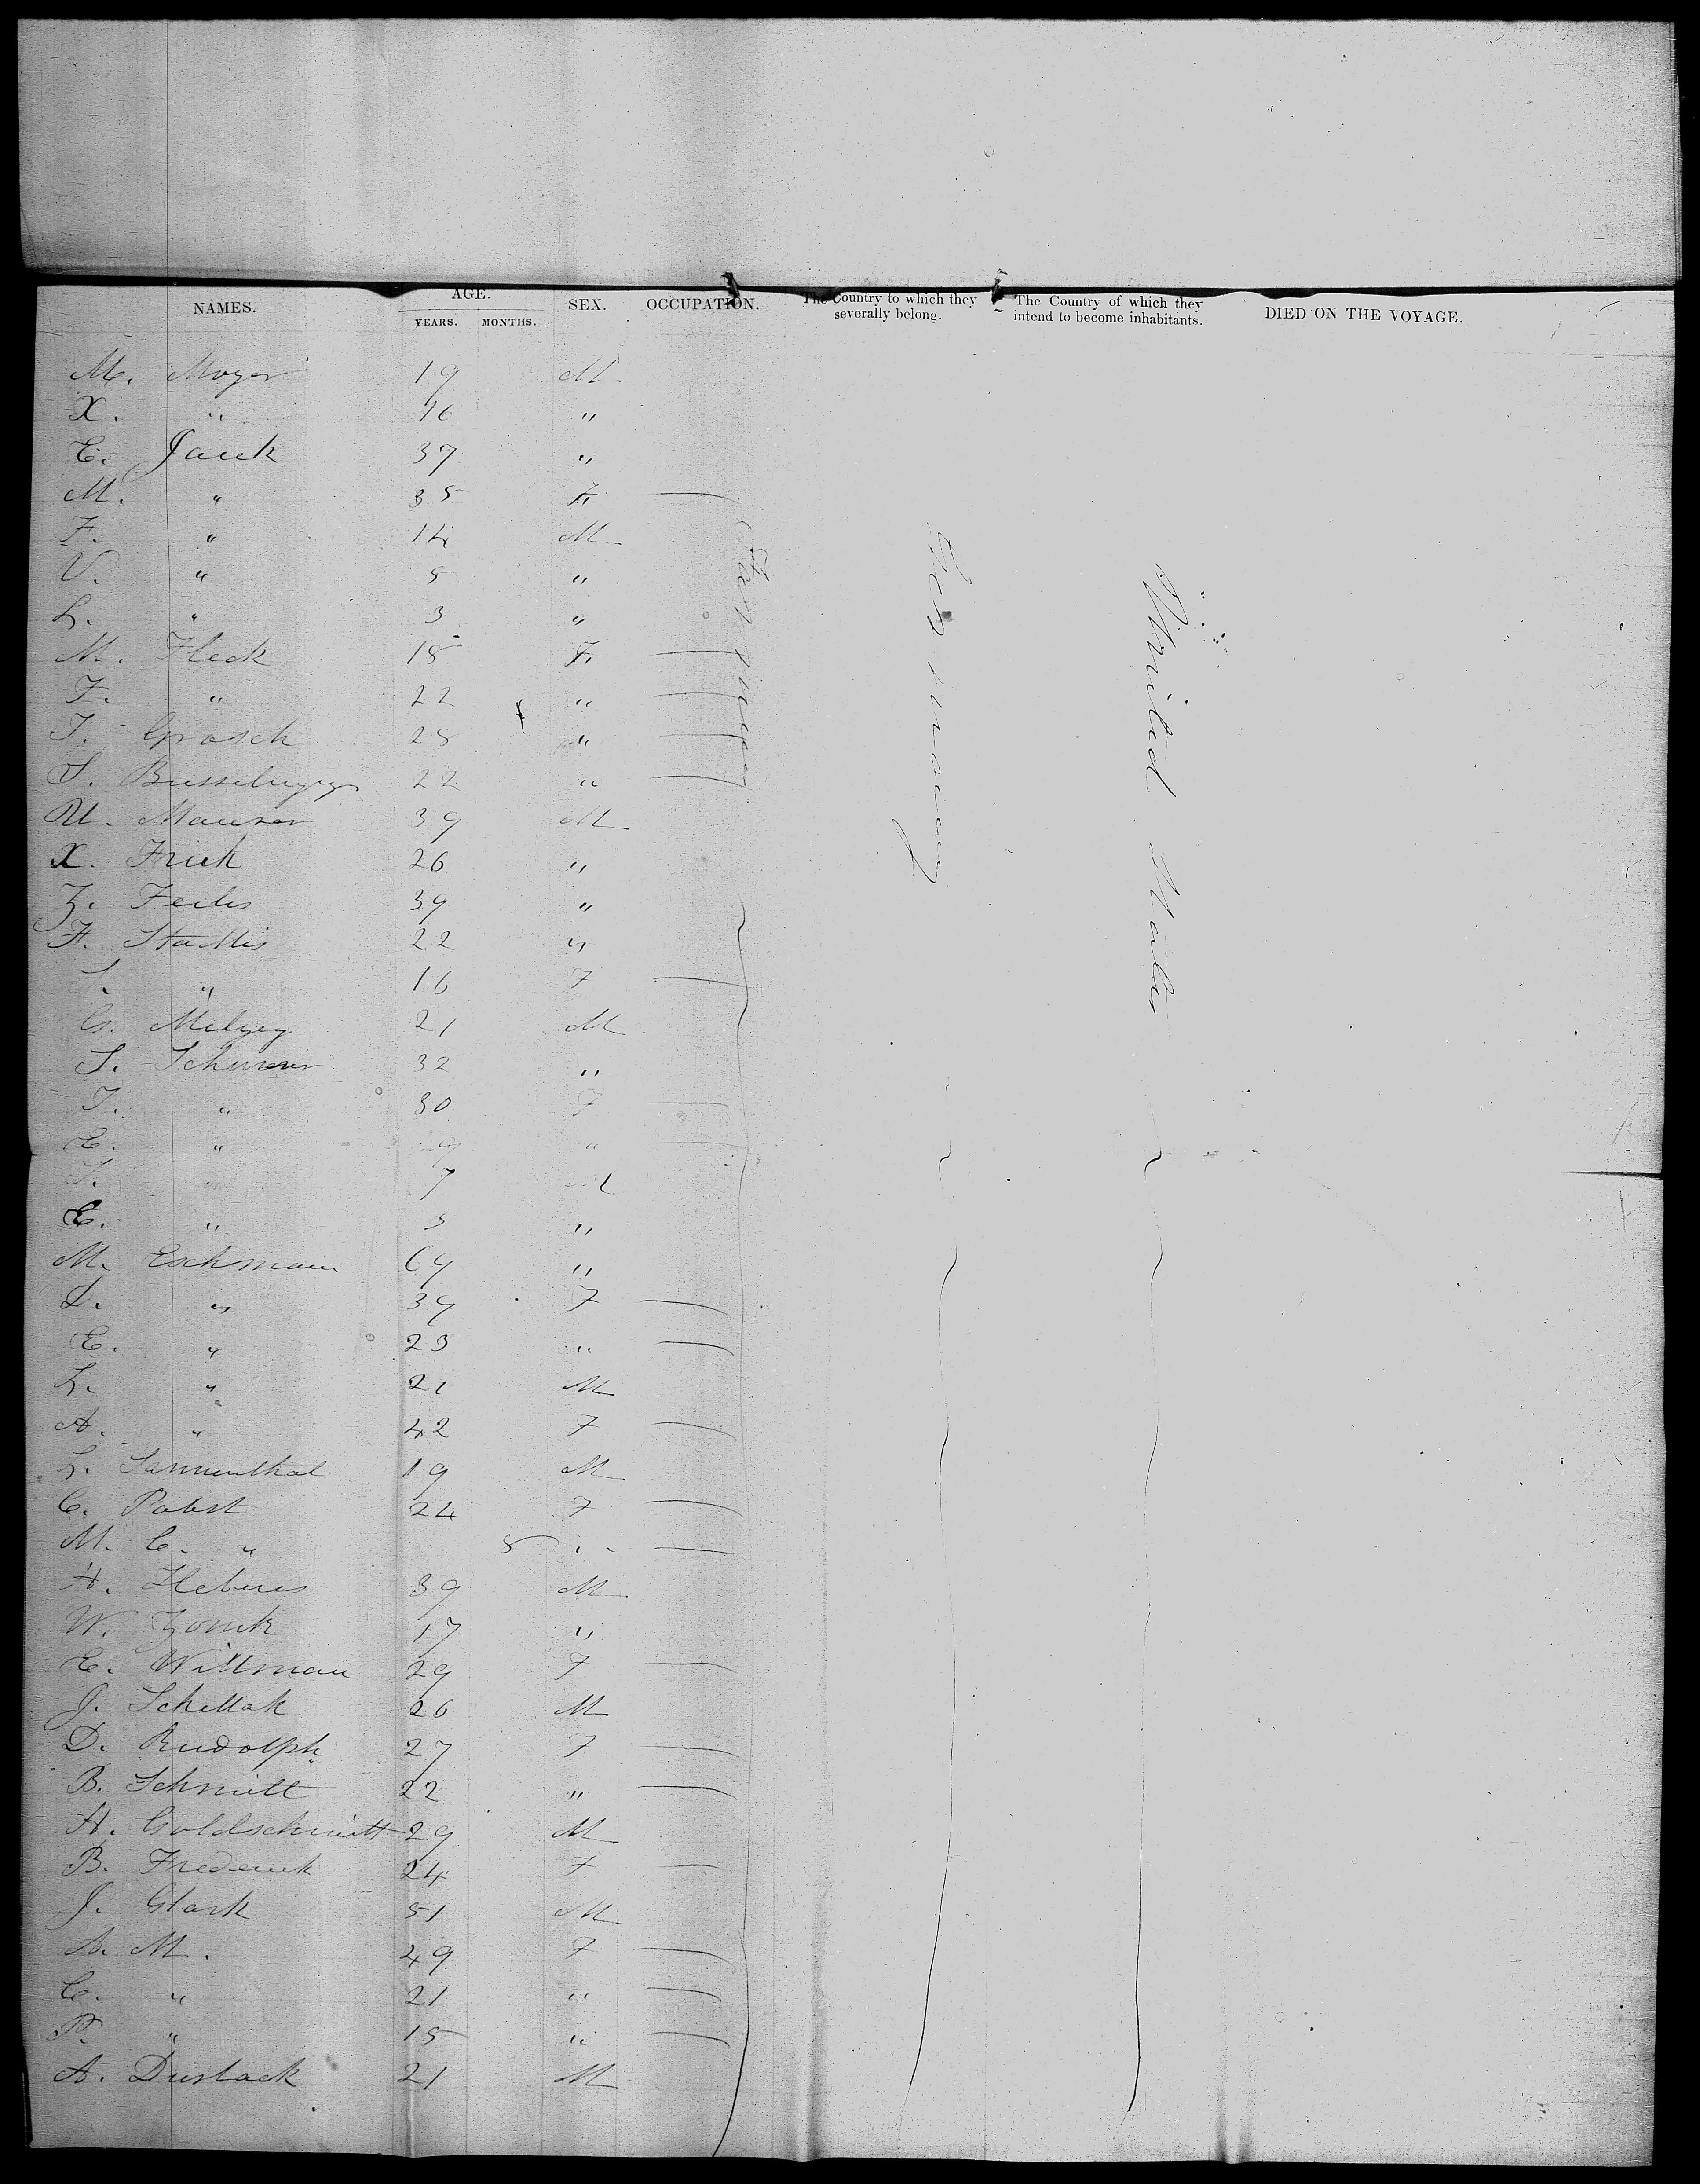 NAMES. AGE. SEX. OCCUPATION. The Country to which they severally belong. The Country of which they intend to become inhabitants. DIED ON THE VOYAGE.
YEARS. MONTHS.
M. Moyer 19 M.
X. " 16 "
E. Jauck 37 "
M. " 35 F. —
F. " 14 M
V. " 5 "
L. " 3 "
M. Fleck 18 F. —
F. " 22 " —
T. Grosch 25 " —
S. 22 " —
M. Maurer 39 M
X. Frick 26 "
Z. 39 "
F. 22 "
S. " 16 F —
G. 21 M
S. 32 "
T. " 30 F —
E. " 9 " —
S. " 7 M
E. " 3 "
M. Eschmann 64 "
L. " 34 F —
E. " 23 " —
L. " 21 M
A. " 42 F —
L. Sannenthal 19 M
C. Pabst 24 F —
M. C. " 8 " —
H. 39 M
W. 17 "
E. Wittman 29 F —
J. Schellak 26 M
D. Rudolph 27 F —
B. Schmitt 22 " —
H. Goldschmitt 29 M
B. Frederick 24 F —
J. Glark 51 M
B. M. 49 F —
C. " 21 " —
P. " 15 " —
A. Durlack 21 M
Farmer
Germany
United States